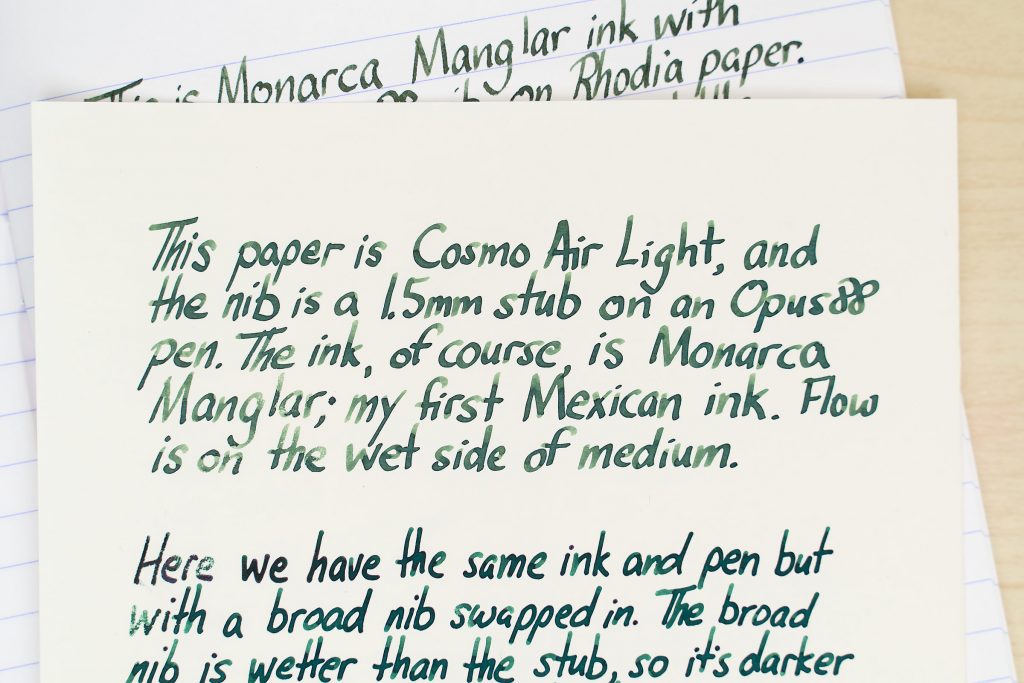 This is Monarca Manglar ink with
on Rhodia paper.
This paper is Cosmo Air Light, and
the nib is a 1.5mm stub on an Opus 88
pen. The ink, of course, is Monarca
Manglar; my first Mexican ink. Flow
is on the wet side of medium.
Here we have the same ink and pen but
with a broad nib swapped in. The broad
nib is wetter than the stub, so it's darker